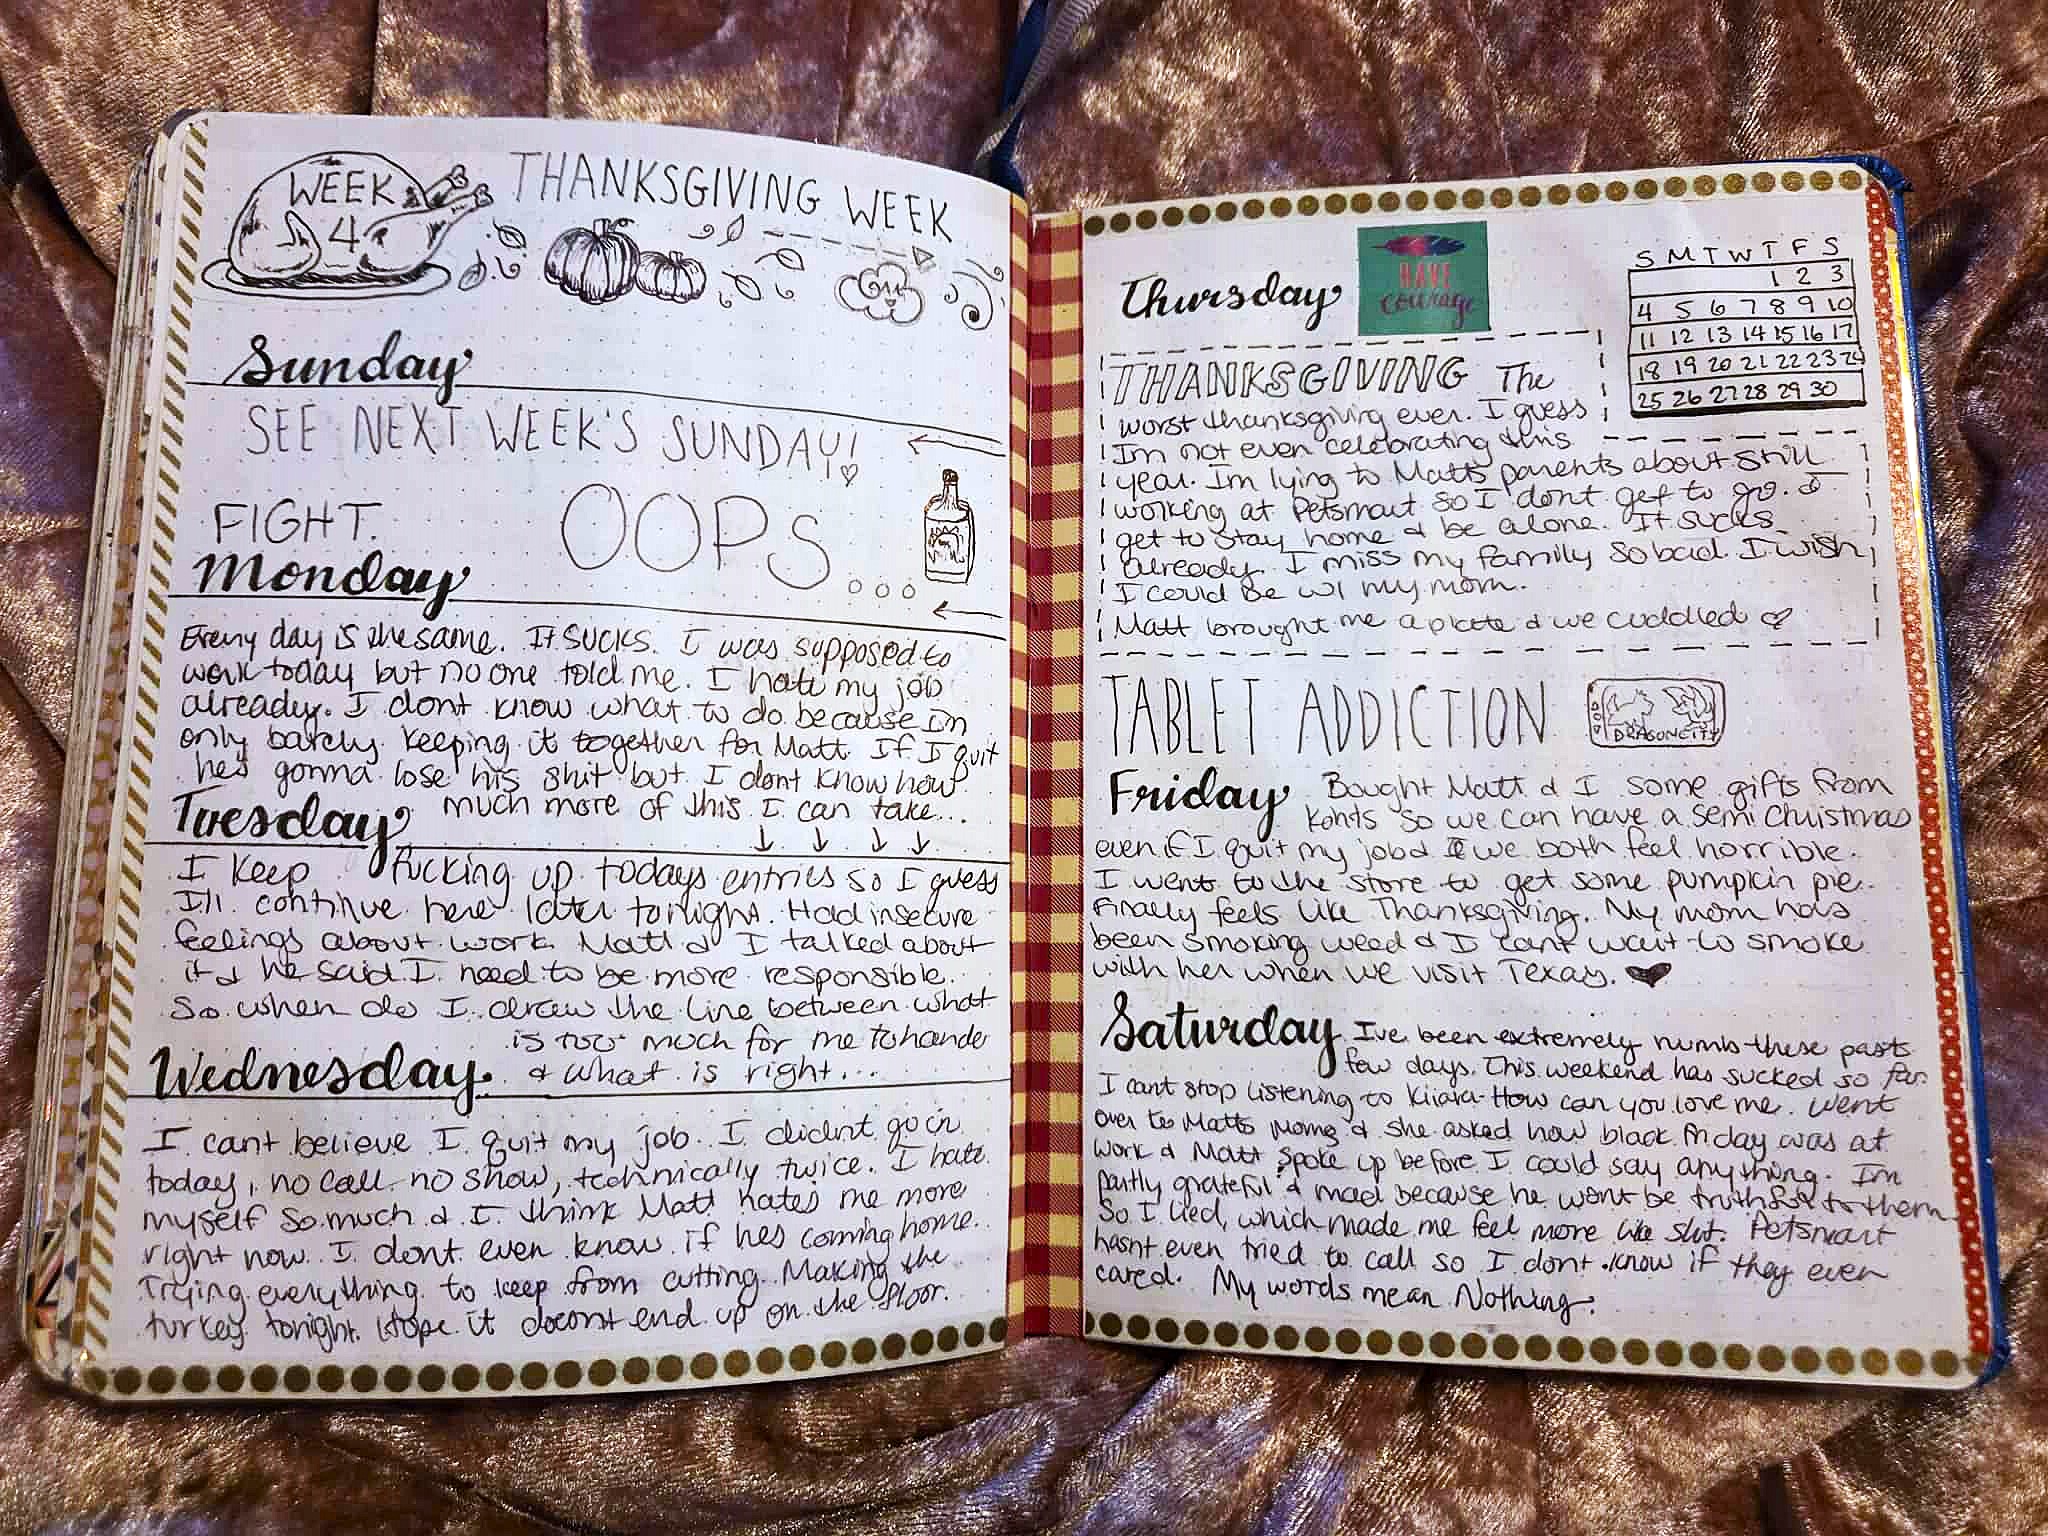 WEEK
4
THANKSGIVING WEEK
Sunday
SEE NEXT WEEK'S SUNDAY!
FIGHT.
OOPS...
Monday
Every day is the same. It sucks. I was supposed to
work today but no one told me. I hate my job
already. I dont know what to do because Im
only barely keeping it together for Matt. If I quit
hes gonna lose his shit but I dont know how
much more of this I can take...
Tuesday
I keep fucking up todays entries so I guess
I'll continue here later tonight. Had insecure
feelings about work. Matt & I talked about
it & he said I need to be more responsible.
So when do I draw the line between what
is too much for me to hande
& what is right...
Wednesday
I cant believe I quit my job. I didnt go in
today, no call no show, technically twice. I hate
myself so much & I think Matt hates me more
right now. I dont even know if hes coming home.
Trying everything to keep from cutting. Making the
turkey tonight. Hope it doesnt end up on the floor.
Thursday
HAVE
courage
S M T W T F S
1 2 3
4 5 6 7 8 9 10
11 12 13 14 15 16 17
18 19 20 21 22 23 24
25 26 27 28 29 30
THANKSGIVING The
worst thanksgiving ever. I guess
Im not even celebrating this
year. Im lying to Matts parents about still
working at Petsmart so I dont get to go. I
get to stay home & be alone. It sucks
already. I miss my family so bad. I wish
I could be w/ my mom.
Matt brought me a plate & we cuddled
TABLET ADDICTION
DRAGONCITY
Friday
Bought Matt & I some gifts from
Kohls so we can have a semi Christmas
even if I quit my job & we both feel horrible.
I went to the store to get some pumpkin pie.
Finally feels like Thanksgiving. My mom has
been smoking weed & I cant wait to smoke
with her when we visit Texas.
Saturday
I've been extremely numb these pasts
few days. This weekend has sucked so far.
I cant stop listening to Kiiara-How can you love me. Went
over to Matts Moms & she asked how black friday was at
work & Matt spoke up before I could say anything. Im
partly grateful & mad because he wont be truthful to them
So I lied, which made me feel more like shit. Petsmart
hasnt even tried to call so I dont know if they even
cared. My words mean Nothing.